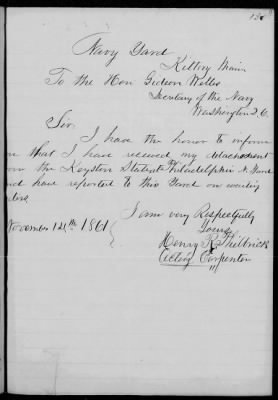 Navy Yard
Kittery Main
To the Hon Gideon Welles
Secretary of the Navy
Washington D.C
Sir
I have the honor to inform
that I have received my detachment
the Keyston State at Philadelphia N. Yard
and have reported to this Yard on waiting
I am very Respectfully
November 12th 1861
Yours
Henry R. Philbrick
Acting Carpenter